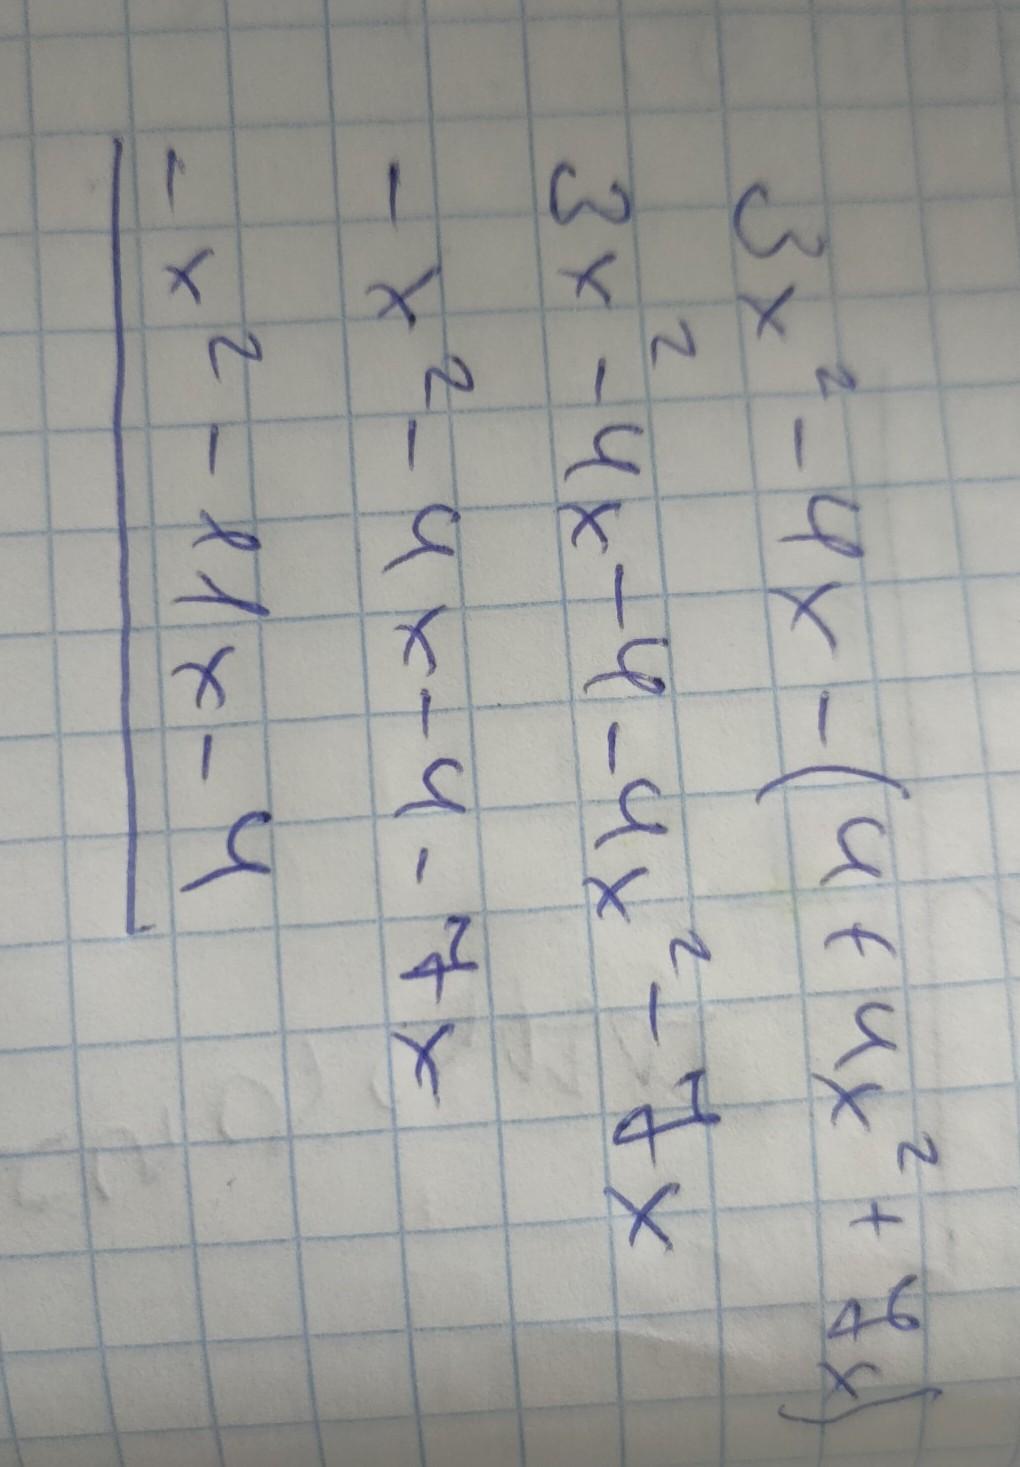 3x² - 4x - (4 + 4x² + 7x)
3x² - 4x - 4 - 4x² - 7x
- x² - 4x - 4 - 7x
- x² - 11x - 4